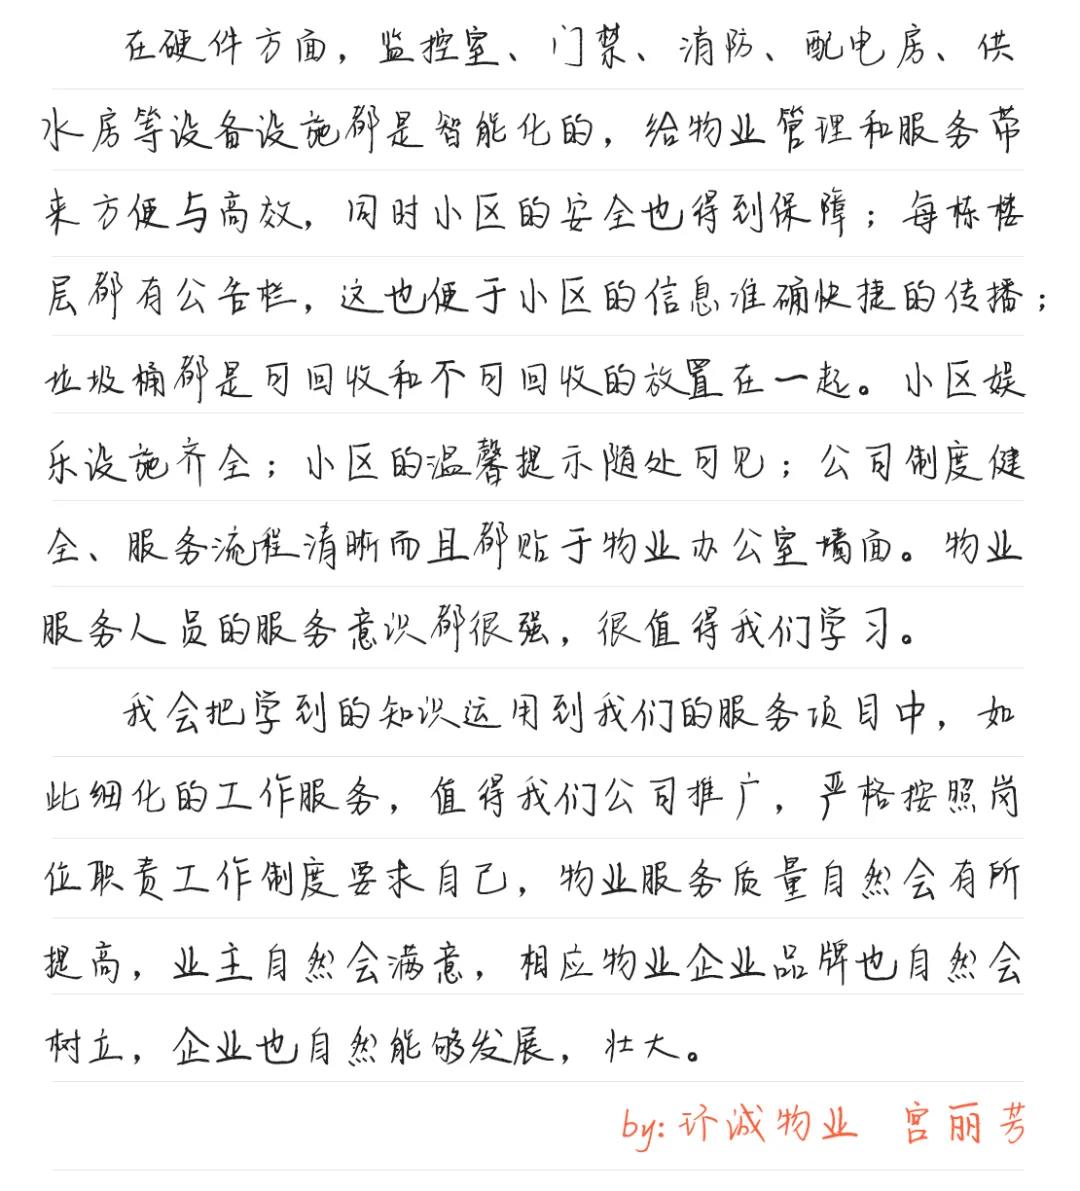 在硬件方面，监控室、门禁、消防、配电房、供
水房等设备设施都是智能化的，给物业管理和服务带
来方便与高效，同时小区的安全也得到保障；每栋楼
层都有公告栏，这也便于小区的信息准确快捷的传播；
垃圾桶都是可回收和不可回收的放置在一起。小区娱
乐设施齐全；小区的温馨提示随处可见；公司制度健
全、服务流程清晰而且都贴于物业办公室墙面。物业
服务人员的服务意识都很强，很值得我们学习。
我会把学到的知识运用到我们的服务项目中，如
此细化的工作服务，值得我们公司推广，严格按照岗
位职责工作制度要求自己，物业服务质量自然会有所
提高，业主自然会满意，相应物业企业品牌也自然会
树立，企业也自然能够发展，壮大。
by: 环诚物业 宫丽芳